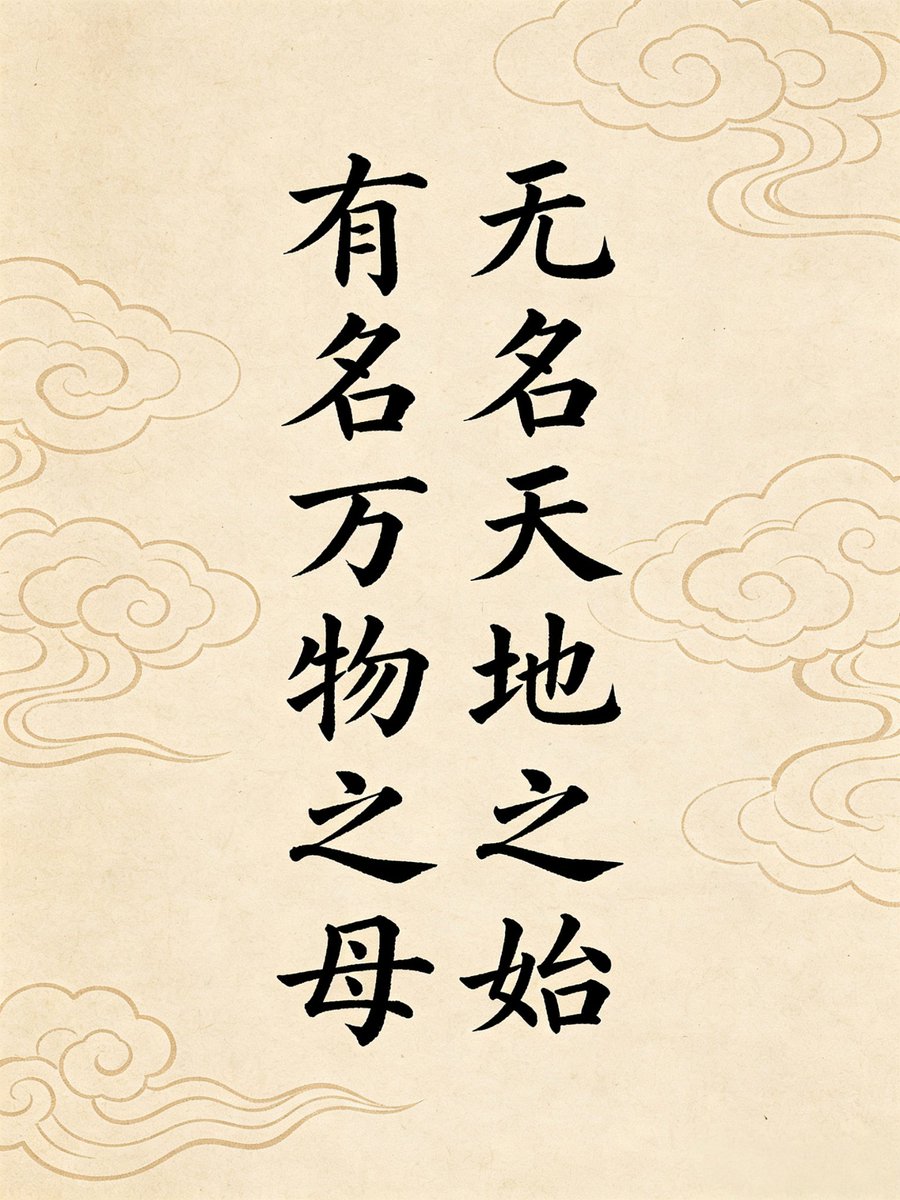 无名天地之始
有名万物之母